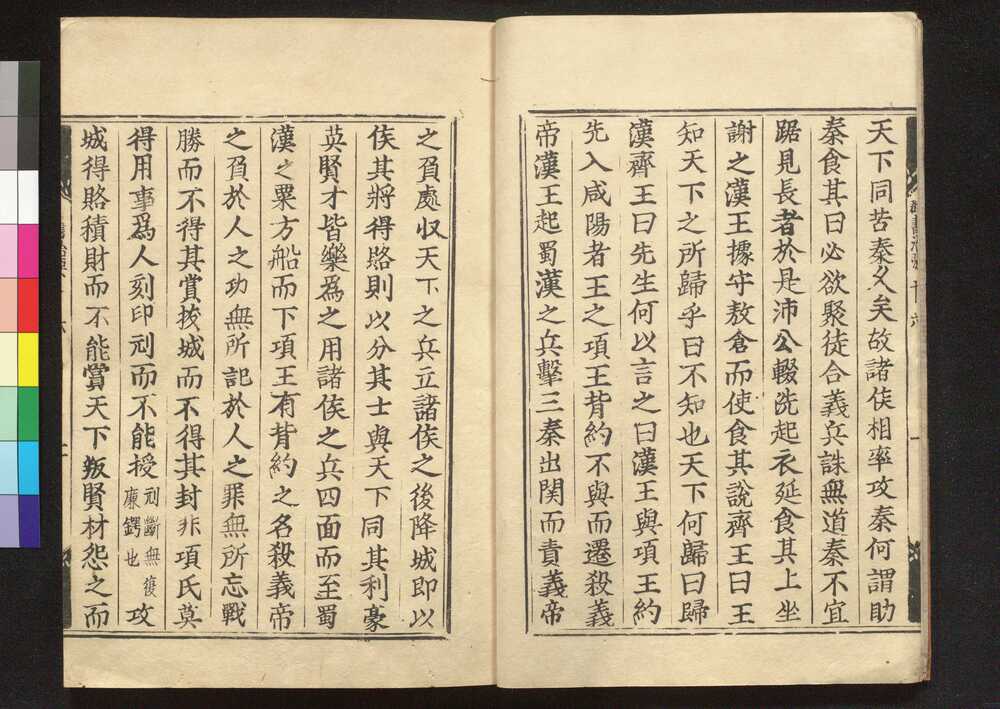 天下同苦秦久矣故諸侯相率攻秦何謂助
秦食其曰必欲聚徒合義兵誅無道秦不宜
踞見長者於是沛公輟洗起衣延食其上坐
謝之漢王據守敖倉而使食其說齊王曰王
知天下之所歸乎曰不知也天下何歸曰歸
漢齊王曰先生何以言之曰漢王與項王約
先入咸陽者王之項王背約不與而遷殺義
帝漢王起蜀漢之兵擊三秦出関而責義帝
之負處収天下之兵立諸侯之後降城即以
侯其將得賂則以分其士與天下同其利豪
英賢才皆樂爲之用諸侯之兵四面而至蜀
漢之粟方船而下項王有背約之名殺義帝
之負於人之功無所記於人之罪無所忘戰
勝而不得其賞拔城而不得其封非項氏莫
得用事爲人刻印刓而不能授刓斷無復廉鍔也攻
城得賂積財而不能賞天下叛賢材怨之而